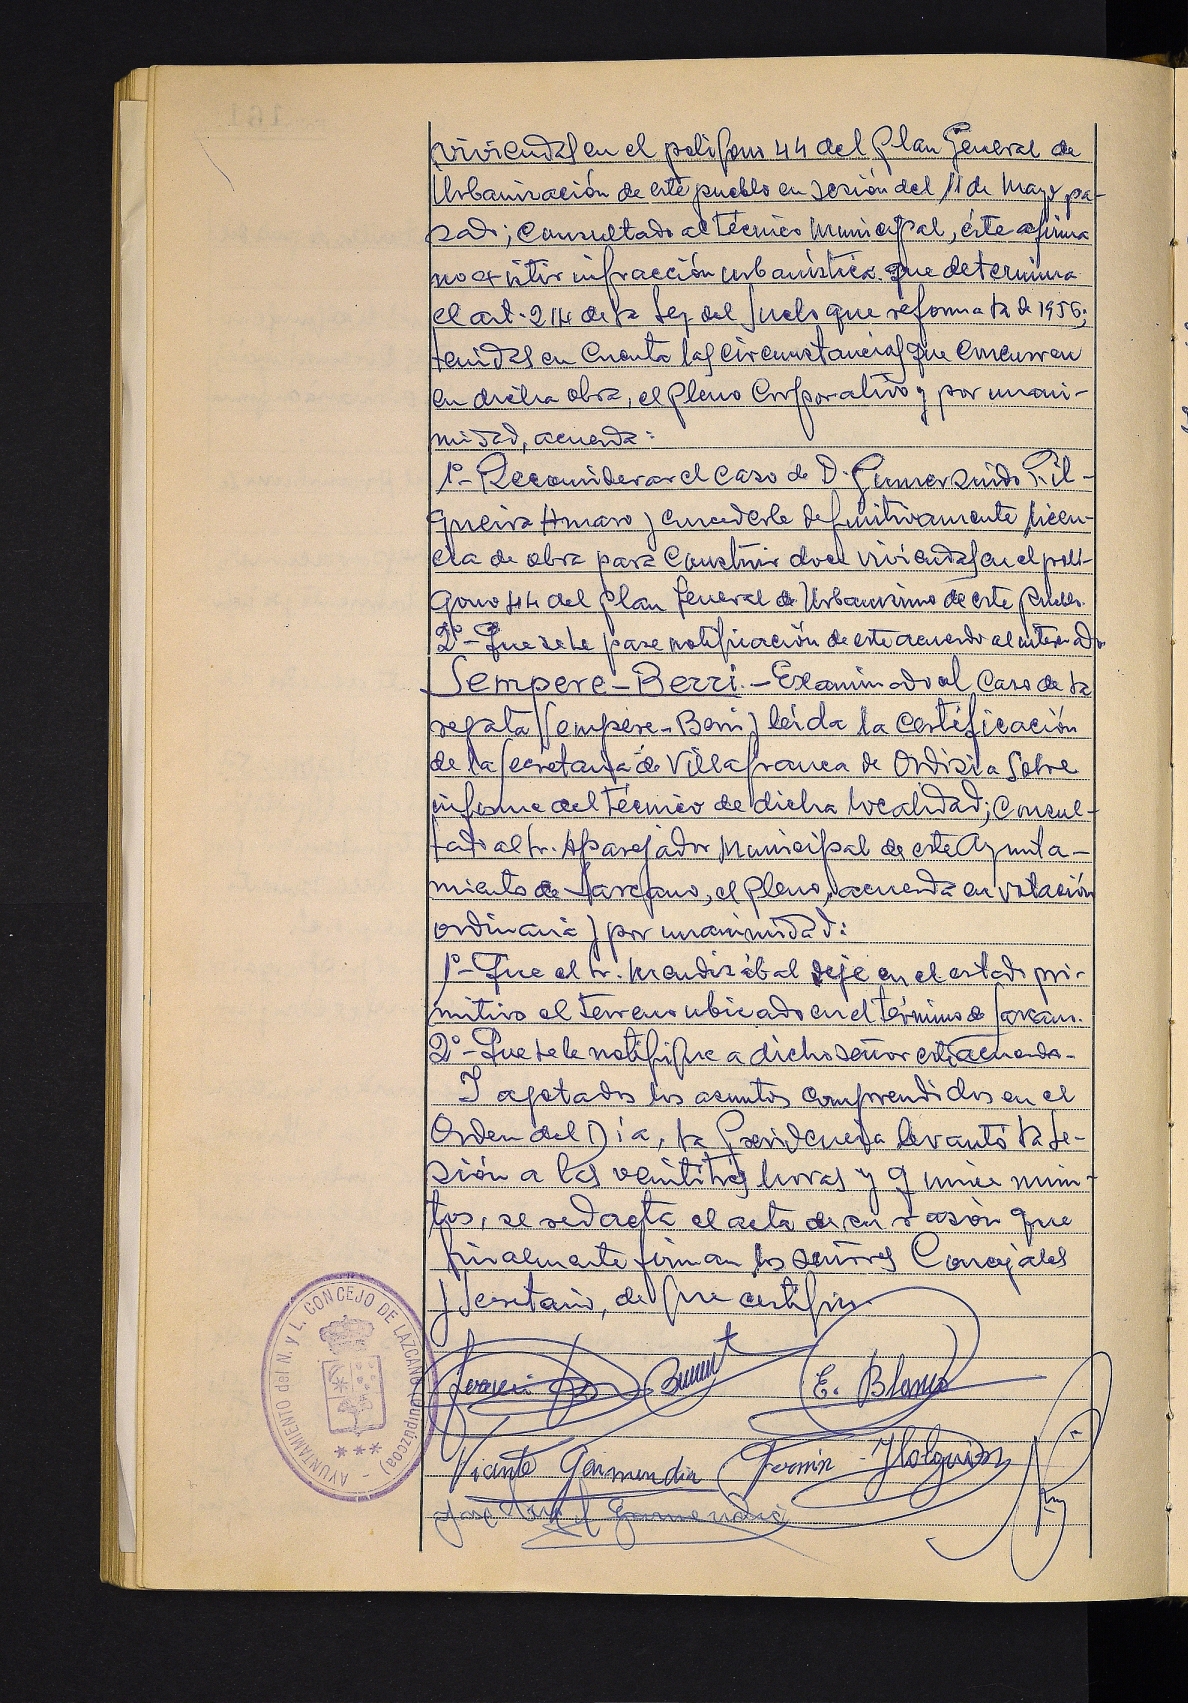 viviendas en el polígono 44 del Plan General de
Urbanización de este pueblo en sesión del 11 de Mayo pa-
sado; Consultado al Técnico Municipal, éste afirma
no existir infracción urbanística que determina
el art. 214 de la Ley del Suelo que reforma la de 1956;
tenidas en Cuenta las circunstancias que concurren
en dicha obra, el Pleno Corporativo y por unani-
midad, acuerda:
1º- Reconsiderar el Caso de D. Gumersindo Fil-
gueira Amaro y concederle definitivamente licen-
cia de obra para Construir doce viviendas en el polí-
gono 44 del Plan General de Urbanismo de este Pueblo.
2º- Que se le pase notificación de este acuerdo al interesado
Sempere-Berri.- Examinado el Caso de la
regata Sempere-Berri y leída la Certificación
de la Secretaría de Villafranca de Ordizia sobre
informe del Técnico de dicha localidad; Consul-
tado al Sr. Aparejador Municipal de este Ayunta-
miento de Lazcano, el Pleno, acuerda en votación
ordinaria y por unanimidad:
1º- Que el Sr. Mendizábal deje en el estado pri-
mitivo el terreno ubicado en el término de Lazcano.
2º- Que se le notifique a dicho señor este acuerdo.
Y agotados los asuntos comprendidos en el
Orden del Día, la Presidencia levantó la se-
sión a las veintitrés horas y quince minu-
tos, se redacta el acta de su razón que
finalmente firman los señores Concejales
y Secretario, de que certifico.
E. Blanco
Vicente Garmendia Fermin Holguin
José Garmendia
AYUNTAMIENTO del N. y L. CONCEJO DE LAZCANO (Guipúzcoa)